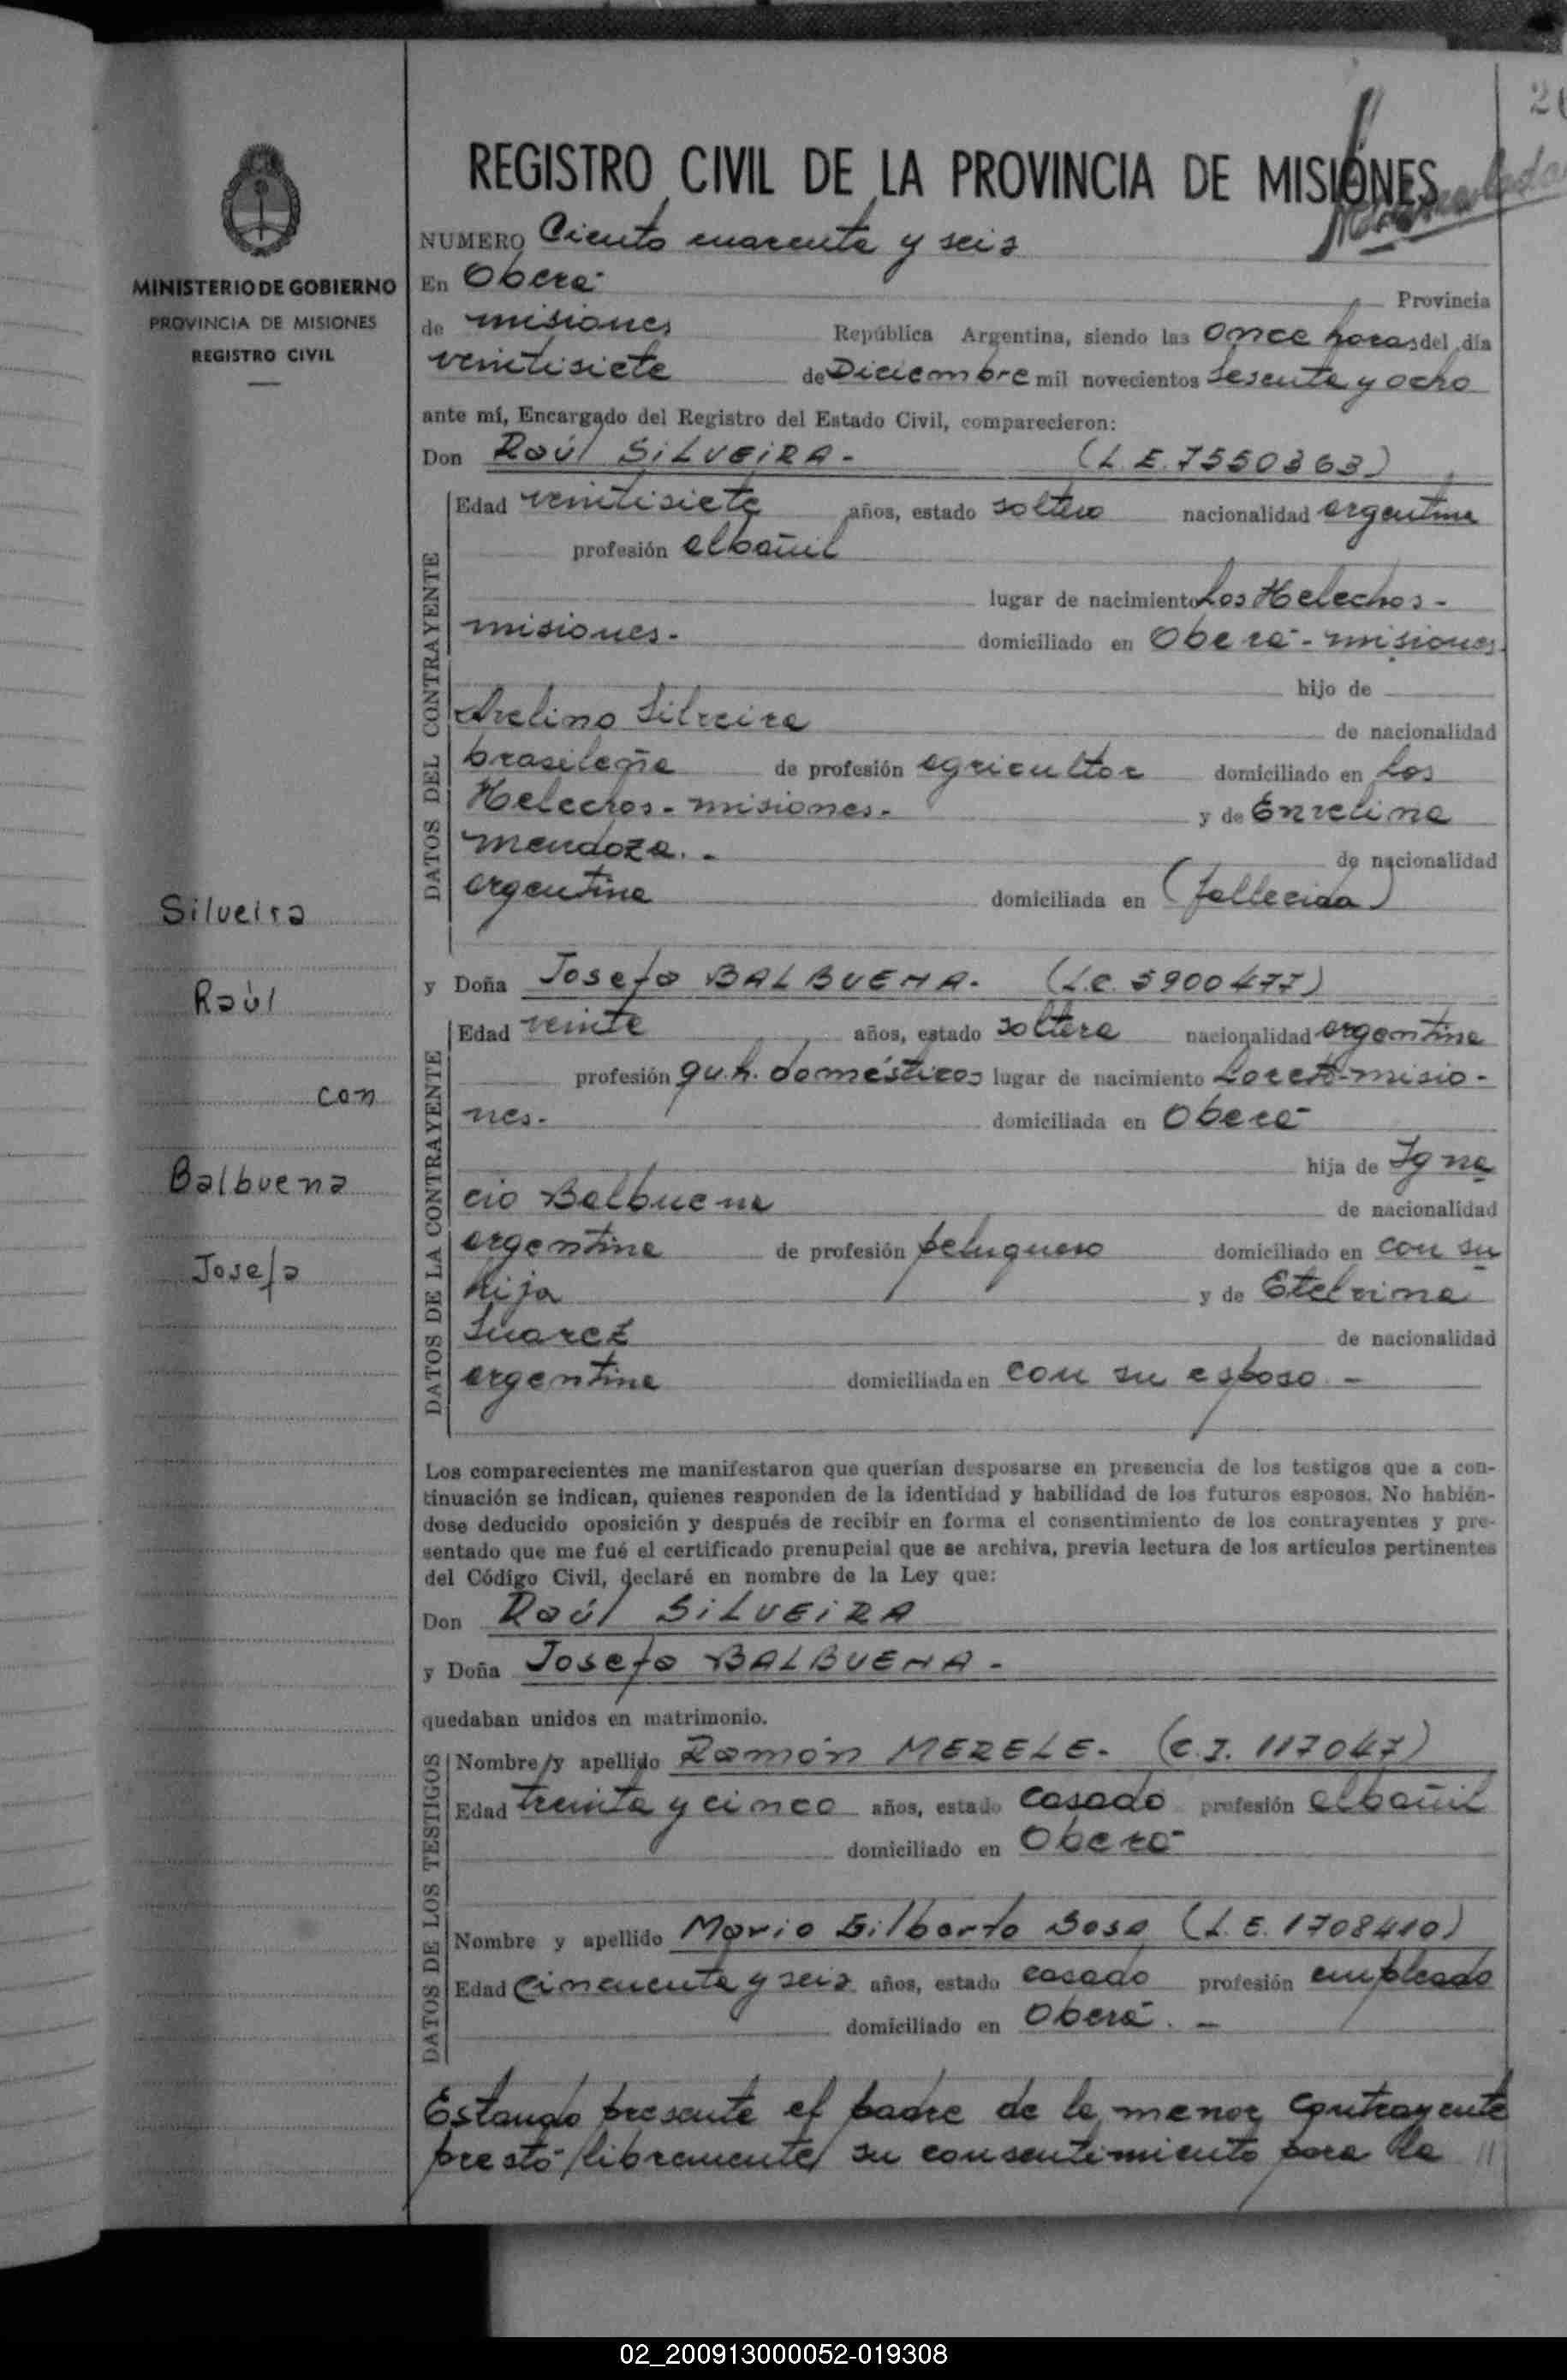 MINISTERIO DE GOBIERNO
PROVINCIA DE MISIONES
REGISTRO CIVIL
Silveira
Raúl
con
Balbuena
Josefa
REGISTRO CIVIL DE LA PROVINCIA DE MISIONES
NUMERO Ciento cuarenta y seis
En Oberá- Provincia
de misiones República Argentina, siendo las once horas del día
veintisiete de Diciembre mil novecientos sesenta y ocho
ante mí, Encargado del Registro del Estado Civil, comparecieron:
Don Raúl SILVEIRA- (L.E. 7550363)
DATOS DEL CONTRAYENTE
Edad veintisiete años, estado soltero nacionalidad argentina
profesión albañil
lugar de nacimiento Los Helechos-
misiones- domiciliado en Oberá- misiones
hijo de
Avelino Silveira de nacionalidad
brasileña de profesión agricultor domiciliado en Los
Helechos- misiones- y de Enrelina
mendoza.- de nacionalidad
argentina domiciliada en (fallecida)
y Doña Josefa BALBUENA- (L.C. 5900477)
DATOS DE LA CONTRAYENTE
Edad veinte años, estado soltera nacionalidad argentina
profesión qu.h. domésticos lugar de nacimiento Loreto-misio-
nes- domiciliada en Oberá-
hija de Igna
cio Balbuena de nacionalidad
argentina de profesión peluquero domiciliado en con su
hija y de Etelvina
Suarez de nacionalidad
argentina domiciliada en con su esposo.-
Los comparecientes me manifestaron que querían desposarse en presencia de los testigos que a con-
tinuación se indican, quienes responden de la identidad y habilidad de los futuros esposos. No habién-
dose deducido oposición y después de recibir en forma el consentimiento de los contrayentes y pre-
sentado que me fué el certificado prenupcial que se archiva, previa lectura de los artículos pertinentes
del Código Civil, declaré en nombre de la Ley que:
Don Raúl SILVEIRA
y Doña Josefa BALBUENA-
quedaban unidos en matrimonio.
DATOS DE LOS TESTIGOS
Nombre y apellido Ramón MERELE- (C.I. 117047)
Edad treinta y cinco años, estado casado profesión albañil
domiciliado en Oberá-
Nombre y apellido Mario Gilberto Sosa (L.E. 1708410)
Edad cincuenta y seis años, estado casado profesión empleado
domiciliado en Oberá.-
Estando presente el padre de la menor contrayente
prestó libremente su consentimiento para la //
02_200913000052-019308